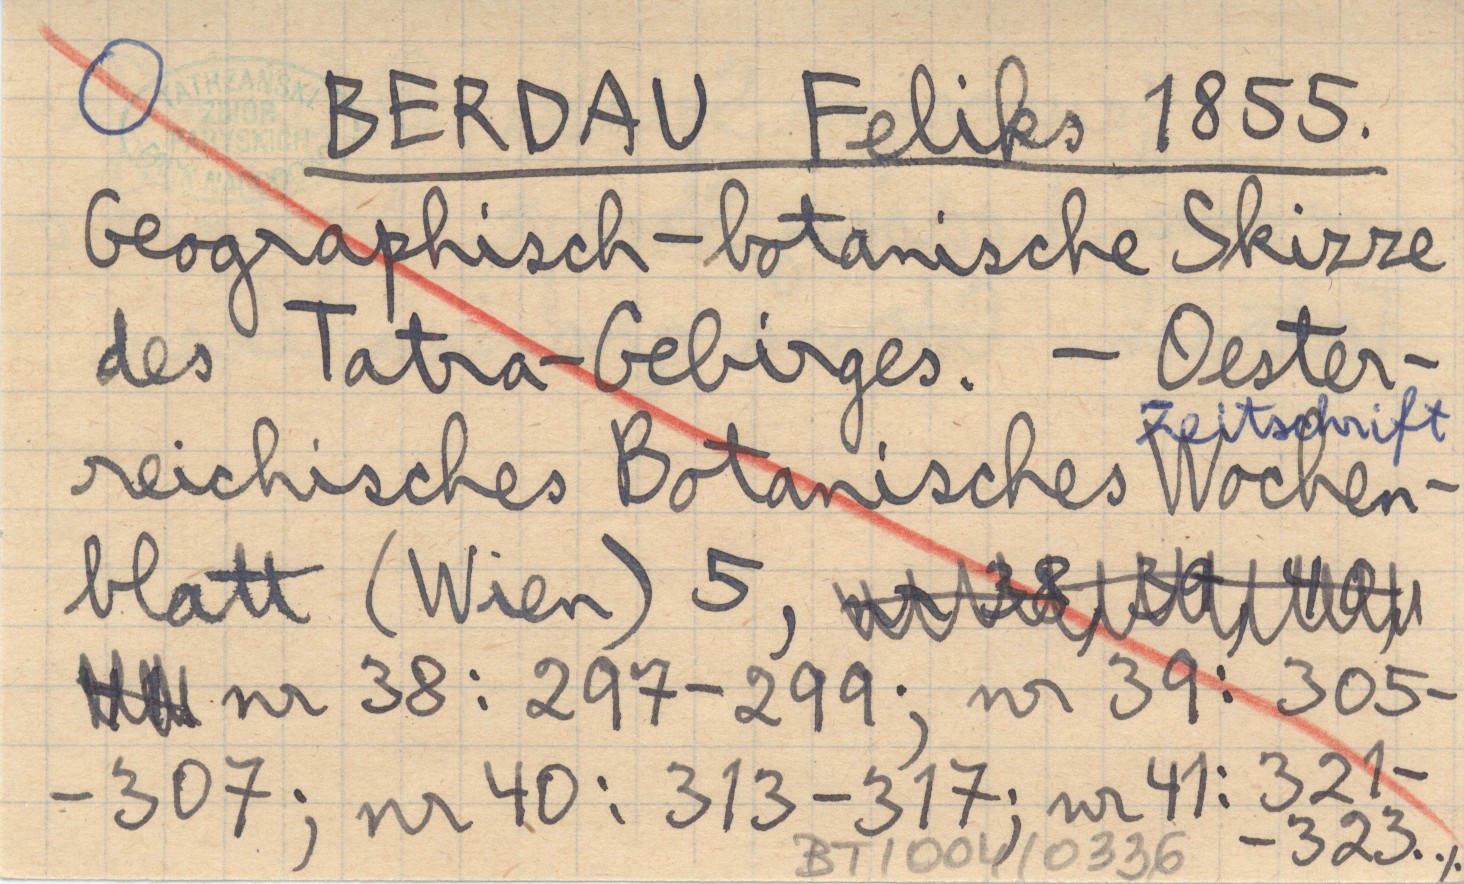 BERDAU Feliks 1855.
Geographisch-botanische Skizze
des Tatra-Gebirges. — Oester-
Zeitschrift
reichisches Botanisches Wochen-
blatt (Wien) 5, nr 38, 39, 40,
nr 38: 297-299; nr 39: 305-
-307; nr 40: 313-317; nr 41: 321-
-323. ./.
BT/004/0336